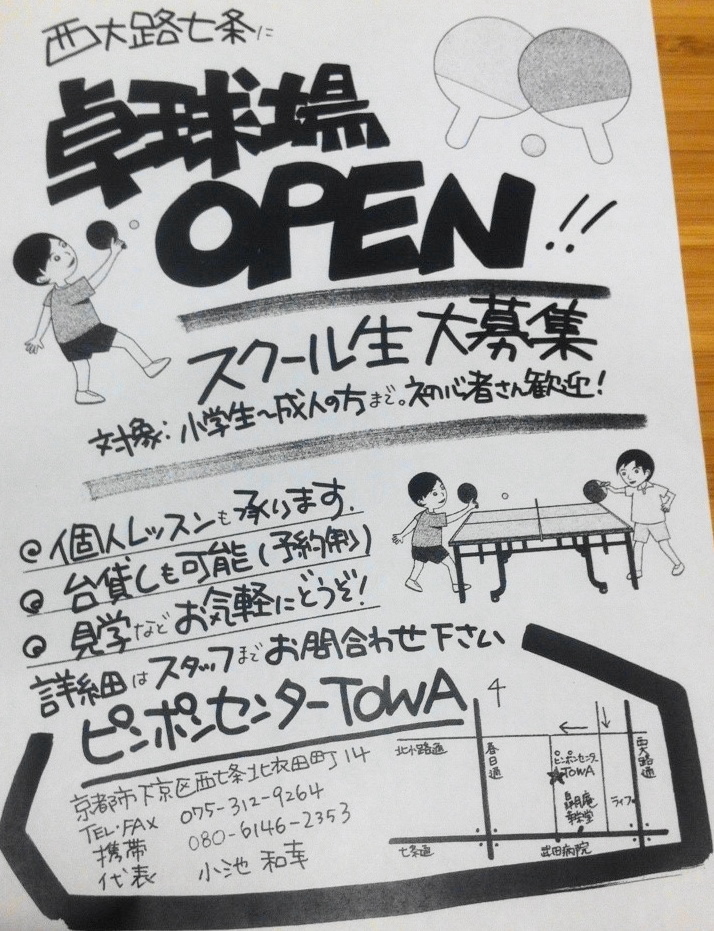 西大路七条に
卓球場
OPEN!!
スクール生大募集
対象:小学生〜成人の方まで。初心者さん歓迎!
個人レッスンも承ります.
台貸しも可能(予約制)
見学などお気軽にどうぞ!
詳細はスタッフまでお問合わせ下さい
ピンポンセンターTOWA
京都市下京区西七条北衣田町14
TEL・FAX 075-312-9264
携帯 080-6146-2353
代表 小池 和幸
北小路通
春日通
ピンポンセンター
TOWA
西大路通
ライフ
七条通
武田病院